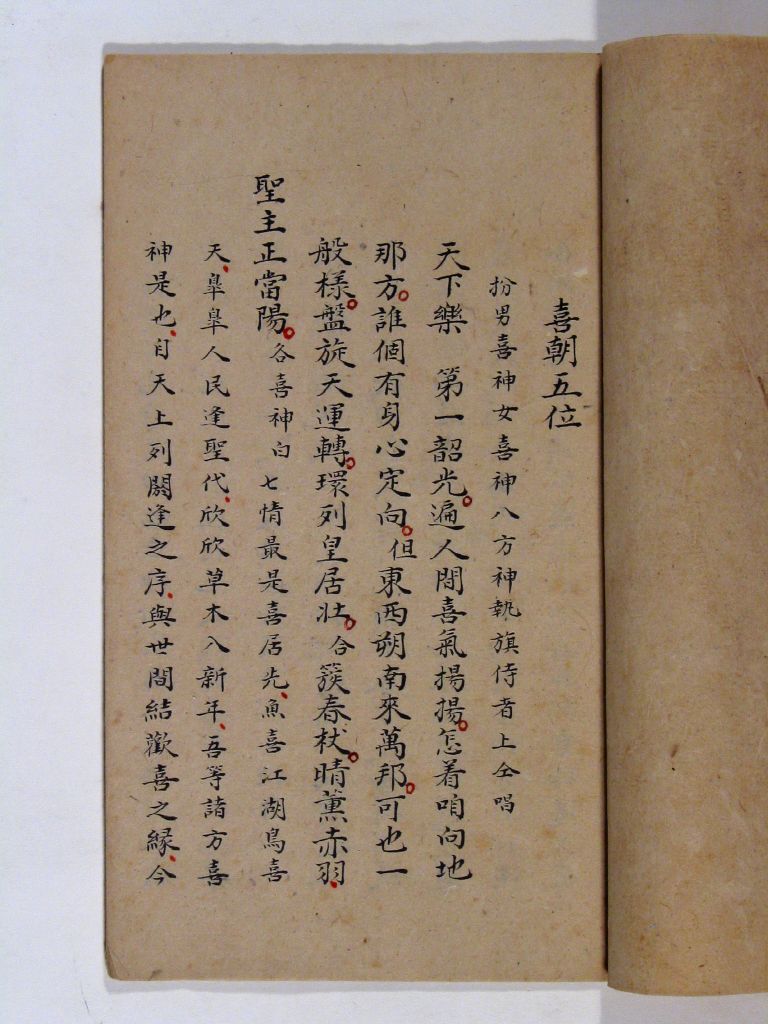 喜朝五位
扮男喜神女喜神八方神執旗侍者上仝唱
天下樂　第一韶光。遍人間喜氣揚揚。怎着咱向地
那方。誰個有身心定向。但東西朔南來萬邦。可也一
般樣。盤旋天運轉。環列皇居壯。合簇春杖。晴薰赤羽、
聖主正當陽。各喜神白　七情最是喜居先、魚喜江湖鳥喜
天、皐皐人民逢聖代、欣欣草木入新年、吾等諸方喜
神是也、自天上列閼逢之序、與世間結歡喜之緣、今